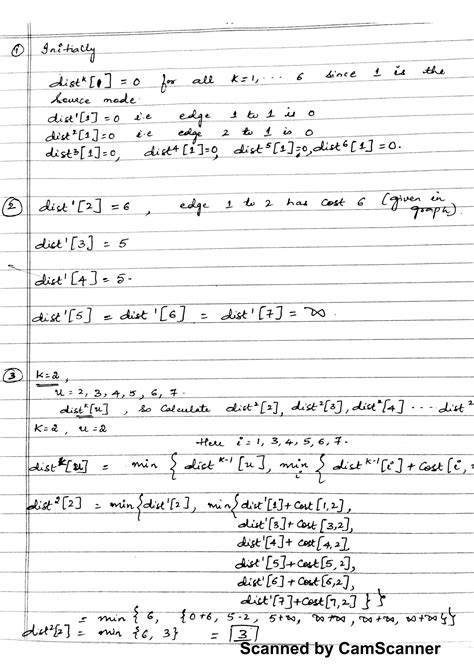 ① Initially
distᵏ[1] = 0 for all k=1,... 6 since 1 is the
source node.
dist'[1] = 0 i.e edge 1 to 1 is 0
dist²[1]=0 i.e edge 2 to 1 is 0
dist3[1]=0, dist⁴[1]=0, dist⁵[1]=0, dist⁶[1]=0.
② dist'[2] = 6, edge 1 to 2 has cost 6 (given in
graph).
dist'[3] = 5
dist'[4] = 5.
dist'[5] = dist'[6] = dist'[7] = ∞
③ k=2,
u = 2, 3, 4, 5, 6, 7.
distᵏ[u], so calculate dist²[2], dist²[3], dist²[4] ... dist²
k=2, u=2
Here i = 1, 3, 4, 5, 6, 7.
distᵏ[u] = min { distᵏ⁻¹[u], min { distᵏ⁻¹[i] + cost[i,
i
dist²[2] = min{dist'[2], min{dist'[1]+cost[1,2],
dist'[3]+cost[3,2],
dist'[4]+cost[4,2],
dist'[5]+cost[5,2],
dist'[6]+cost[6,2],
dist'[7]+cost[7,2] } }
= min { 6, {0+6, 5-2, 5+∞, ∞+∞, ∞+∞, ∞+∞} }
dist²[2] = min {6, 3} = 3
Scanned by CamScanner